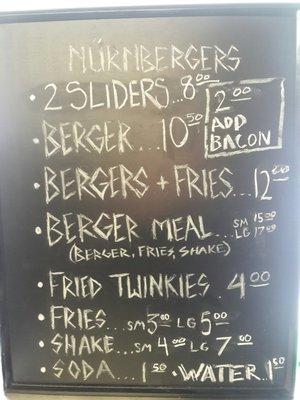 NÜRNBERGERS
• 2 SLIDERS...8.00
2.00
ADD
BACON
• BERGER...10.50
• BERGERS + FRIES...12.00
• BERGER MEAL... SM 15.00
LG 17.00
(BERGER, FRIES, SHAKE)
• FRIED TWINKIES.4.00
• FRIES...SM 3.00 LG 5.00
• SHAKE...SM 4.00 LG 7.00
• SODA...1.50 • WATER.1.50